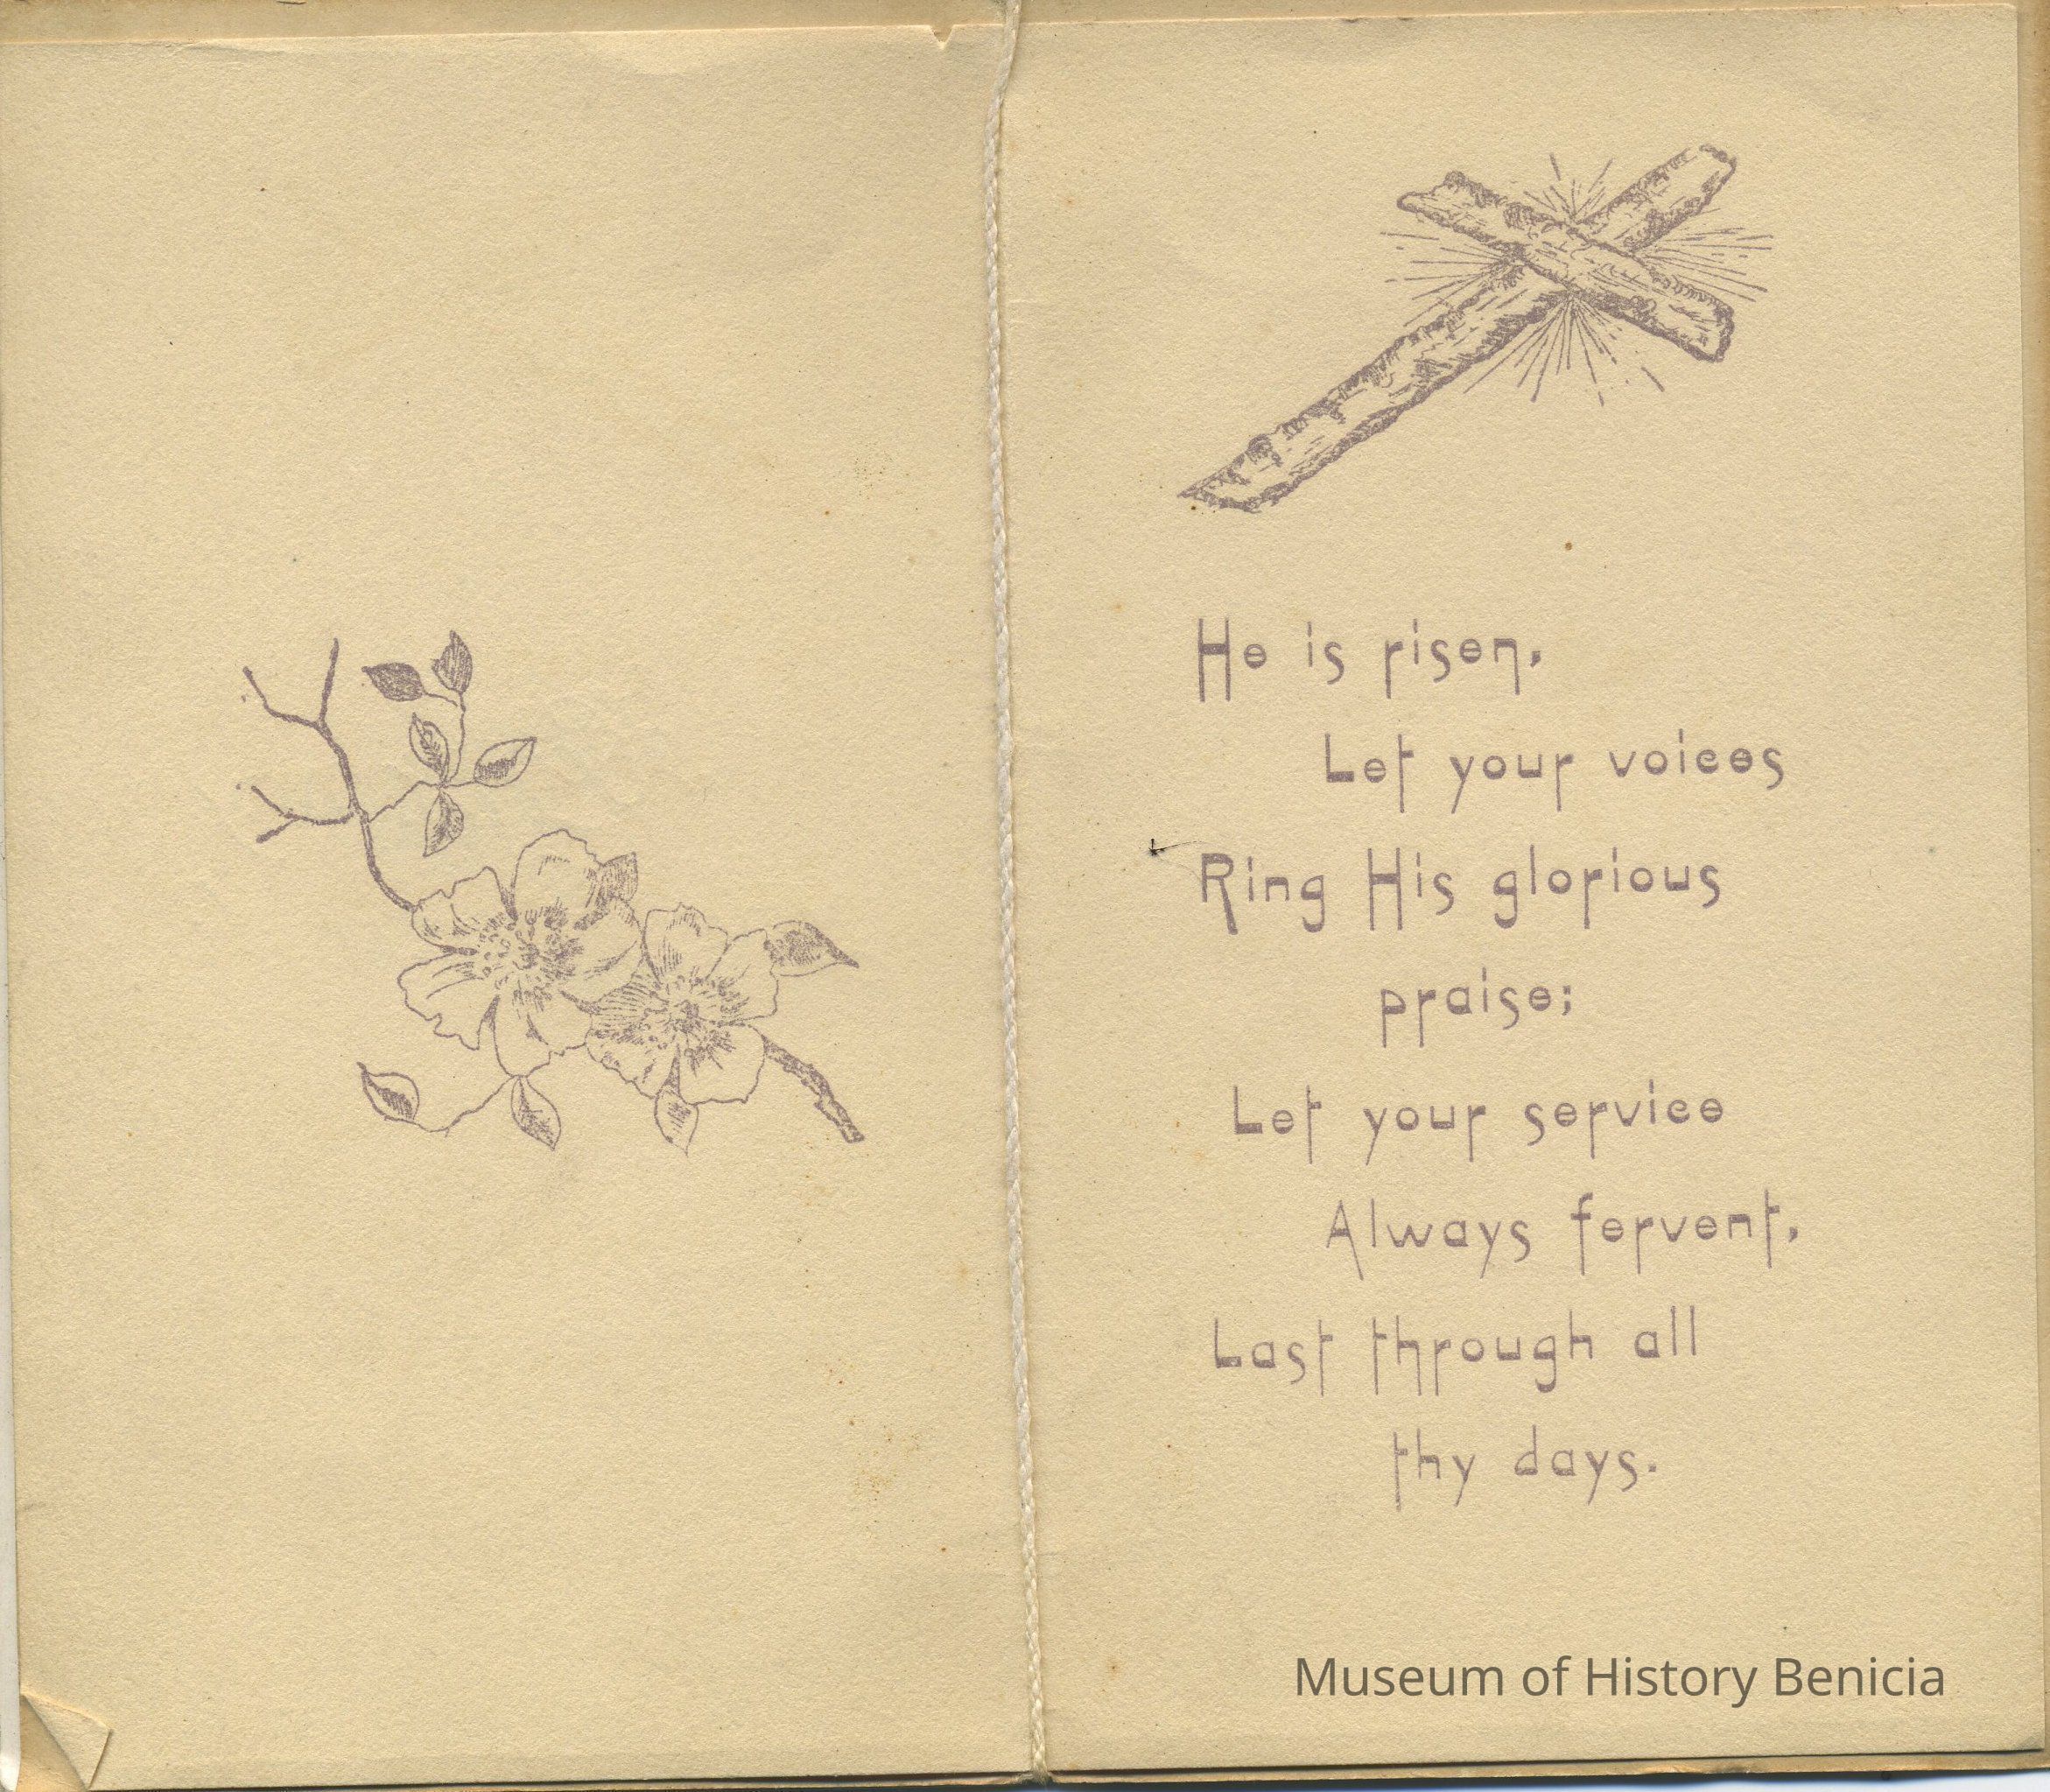 He is risen,
Let your voices
Ring His glorious
praise;
Let your service
Always fervent,
Last through all
thy days.
Museum of History Benicia